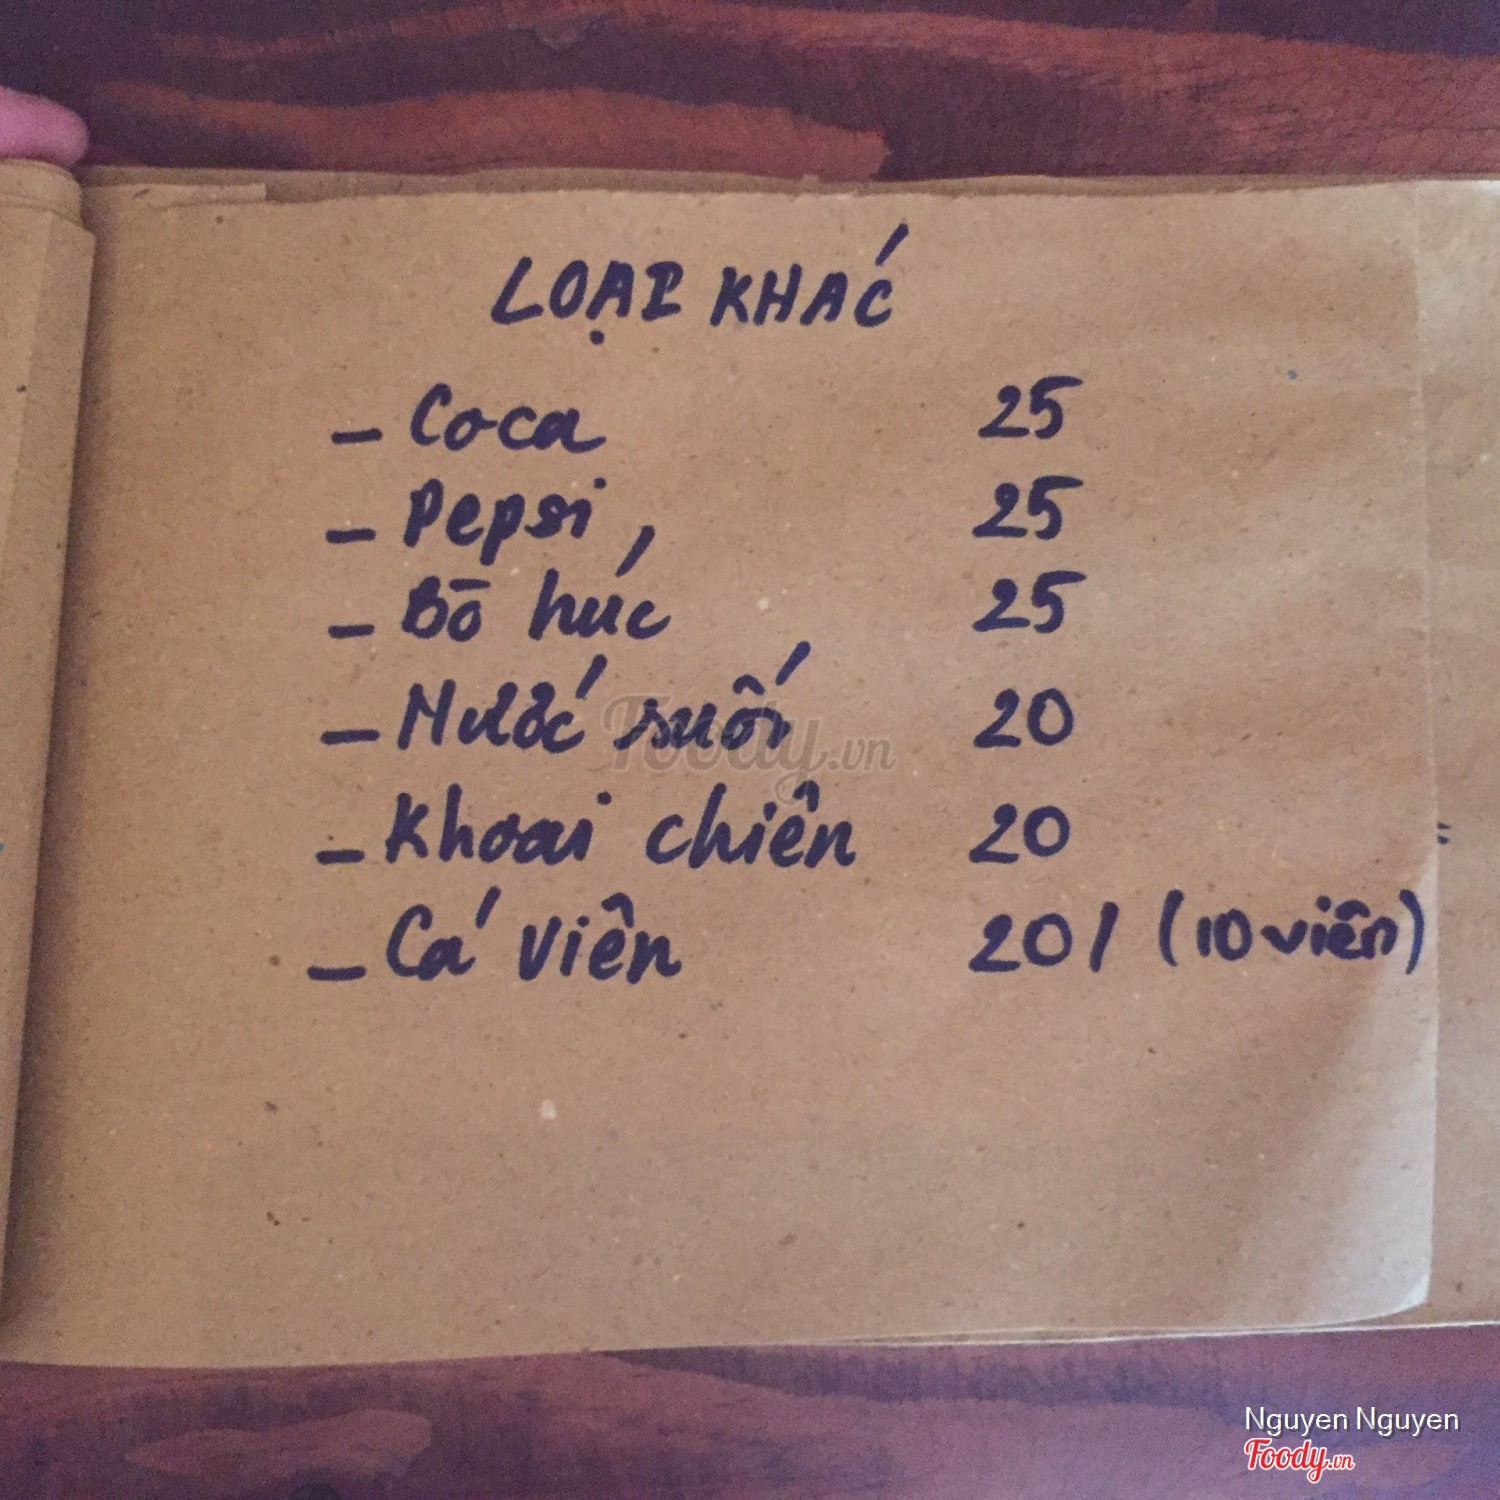 LOẠI KHÁC
- Coca 25
- Pepsi 25
- Bò húc 25
- Nước suối 20
- Khoai chiên 20
- Cá viên 20/ (10 viên)
Foody.vn
Nguyen Nguyen
Foody.vn